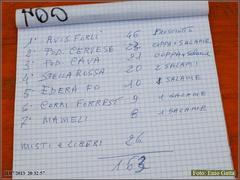 TOO
1° AVIS FORLÌ 46 PROSCIUTTO
2° POD. CERVESE 23 COPPA + SALAME
3° POD. CAVA 21 COPPA + SALAME
4° STELLA ROSSA 20 2 SALAMI
5° EDERA FO 10 1 SALAME
6° CORRI FORREST 9 1 SALAME
7° MAMELI 8 1 SALAME
MISTI e LIBERI 26
163
2013 20:32:57
Foto: Enzo Gatta